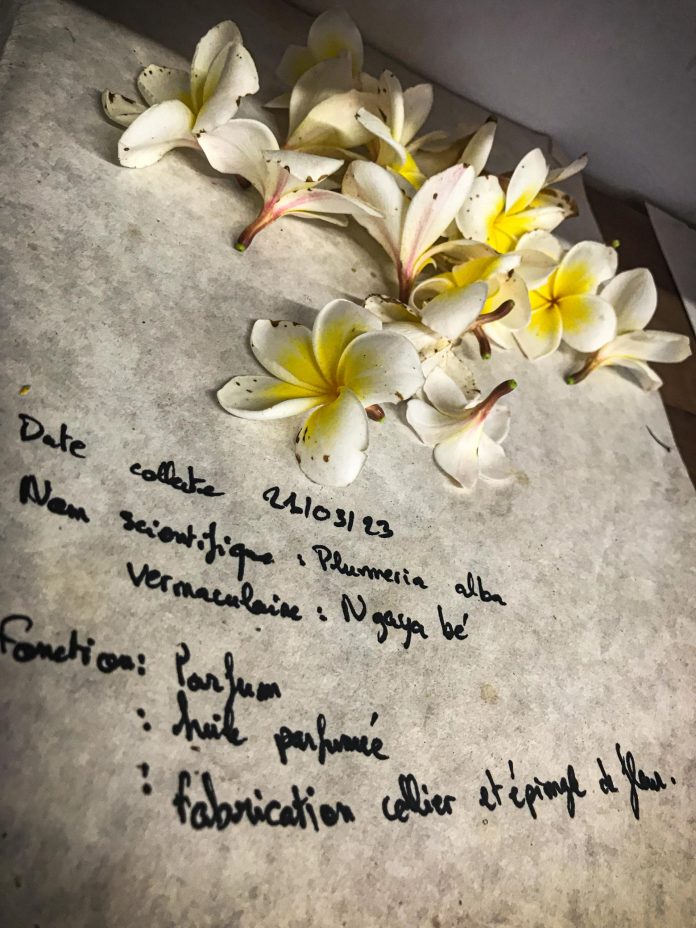 Date collecte 21/03/23
Nom scientifique : Plumeria alba
vernaculaire : Ngaya bé
Fonction : Parfum
: huile parfumée
: fabrication collier et épingle de fleur.